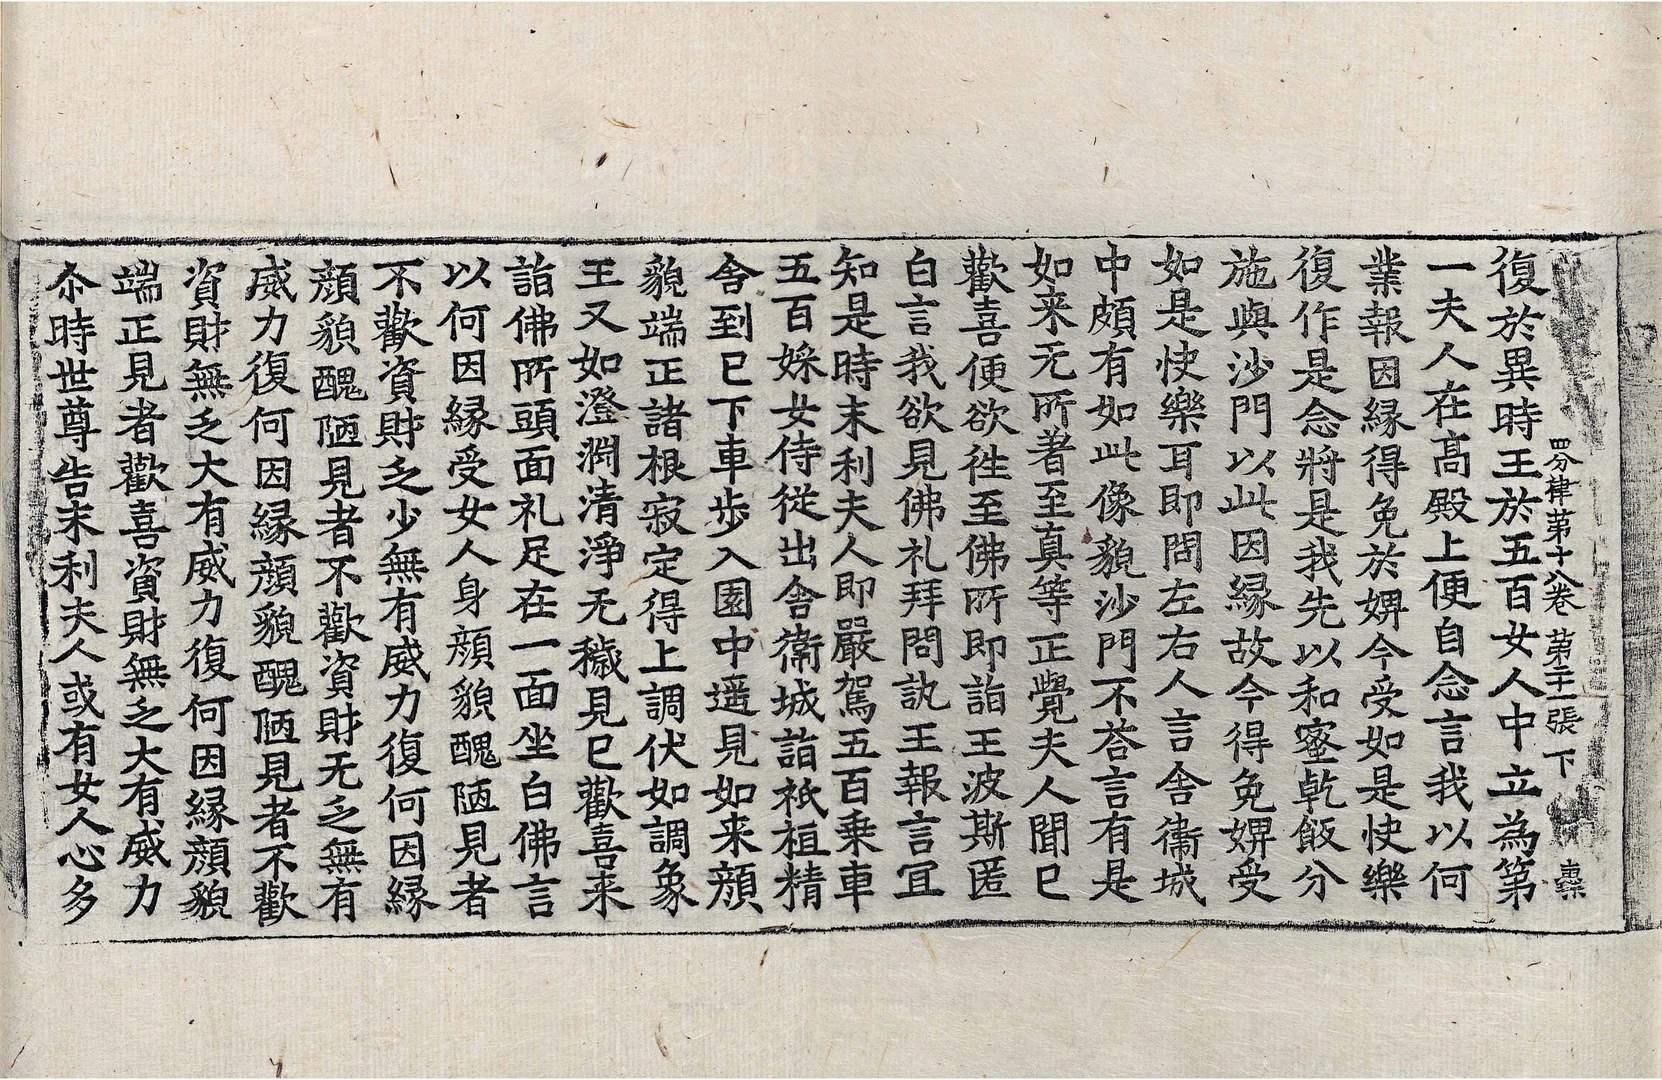 四分律第十八卷 第二十一張 下
復於異時王於五百女人中立為第
一夫人在高殿上便自念言我以何
業報因縁得免於婢今受如是快樂
復作是念將是我先以和蜜乾飯分
施與沙門以此因縁故今得免婢受
如是快樂耳即問左右人言舍衞城
中頗有如此像貌沙門不荅言有是
如来无所著至真等正覺夫人聞已
歡喜便欲徃至佛所即詣王波斯匿
白言我欲見佛礼拜問訊王報言冝
知是時末利夫人即嚴駕五百乗車
五百婇女侍從出舍衞城詣祇桓精
舎到已下車歩入園中遥見如来顔
貌端正諸根寂定得上調伏如調象
王又如澄淵清淨无穢見已歡喜来
詣佛所頭面礼足在一面坐白佛言
以何因縁受女人身顔貌醜陋見者
不歡資財乏少無有威力復何因縁
顔貌醜陋見者不歡資財无乏無有
威力復何因縁顔貌醜陋見者不歡
資財無乏大有威力復何因縁顔貌
端正見者歡喜資財無乏大有威力
尒時世尊告末利夫人或有女人心多